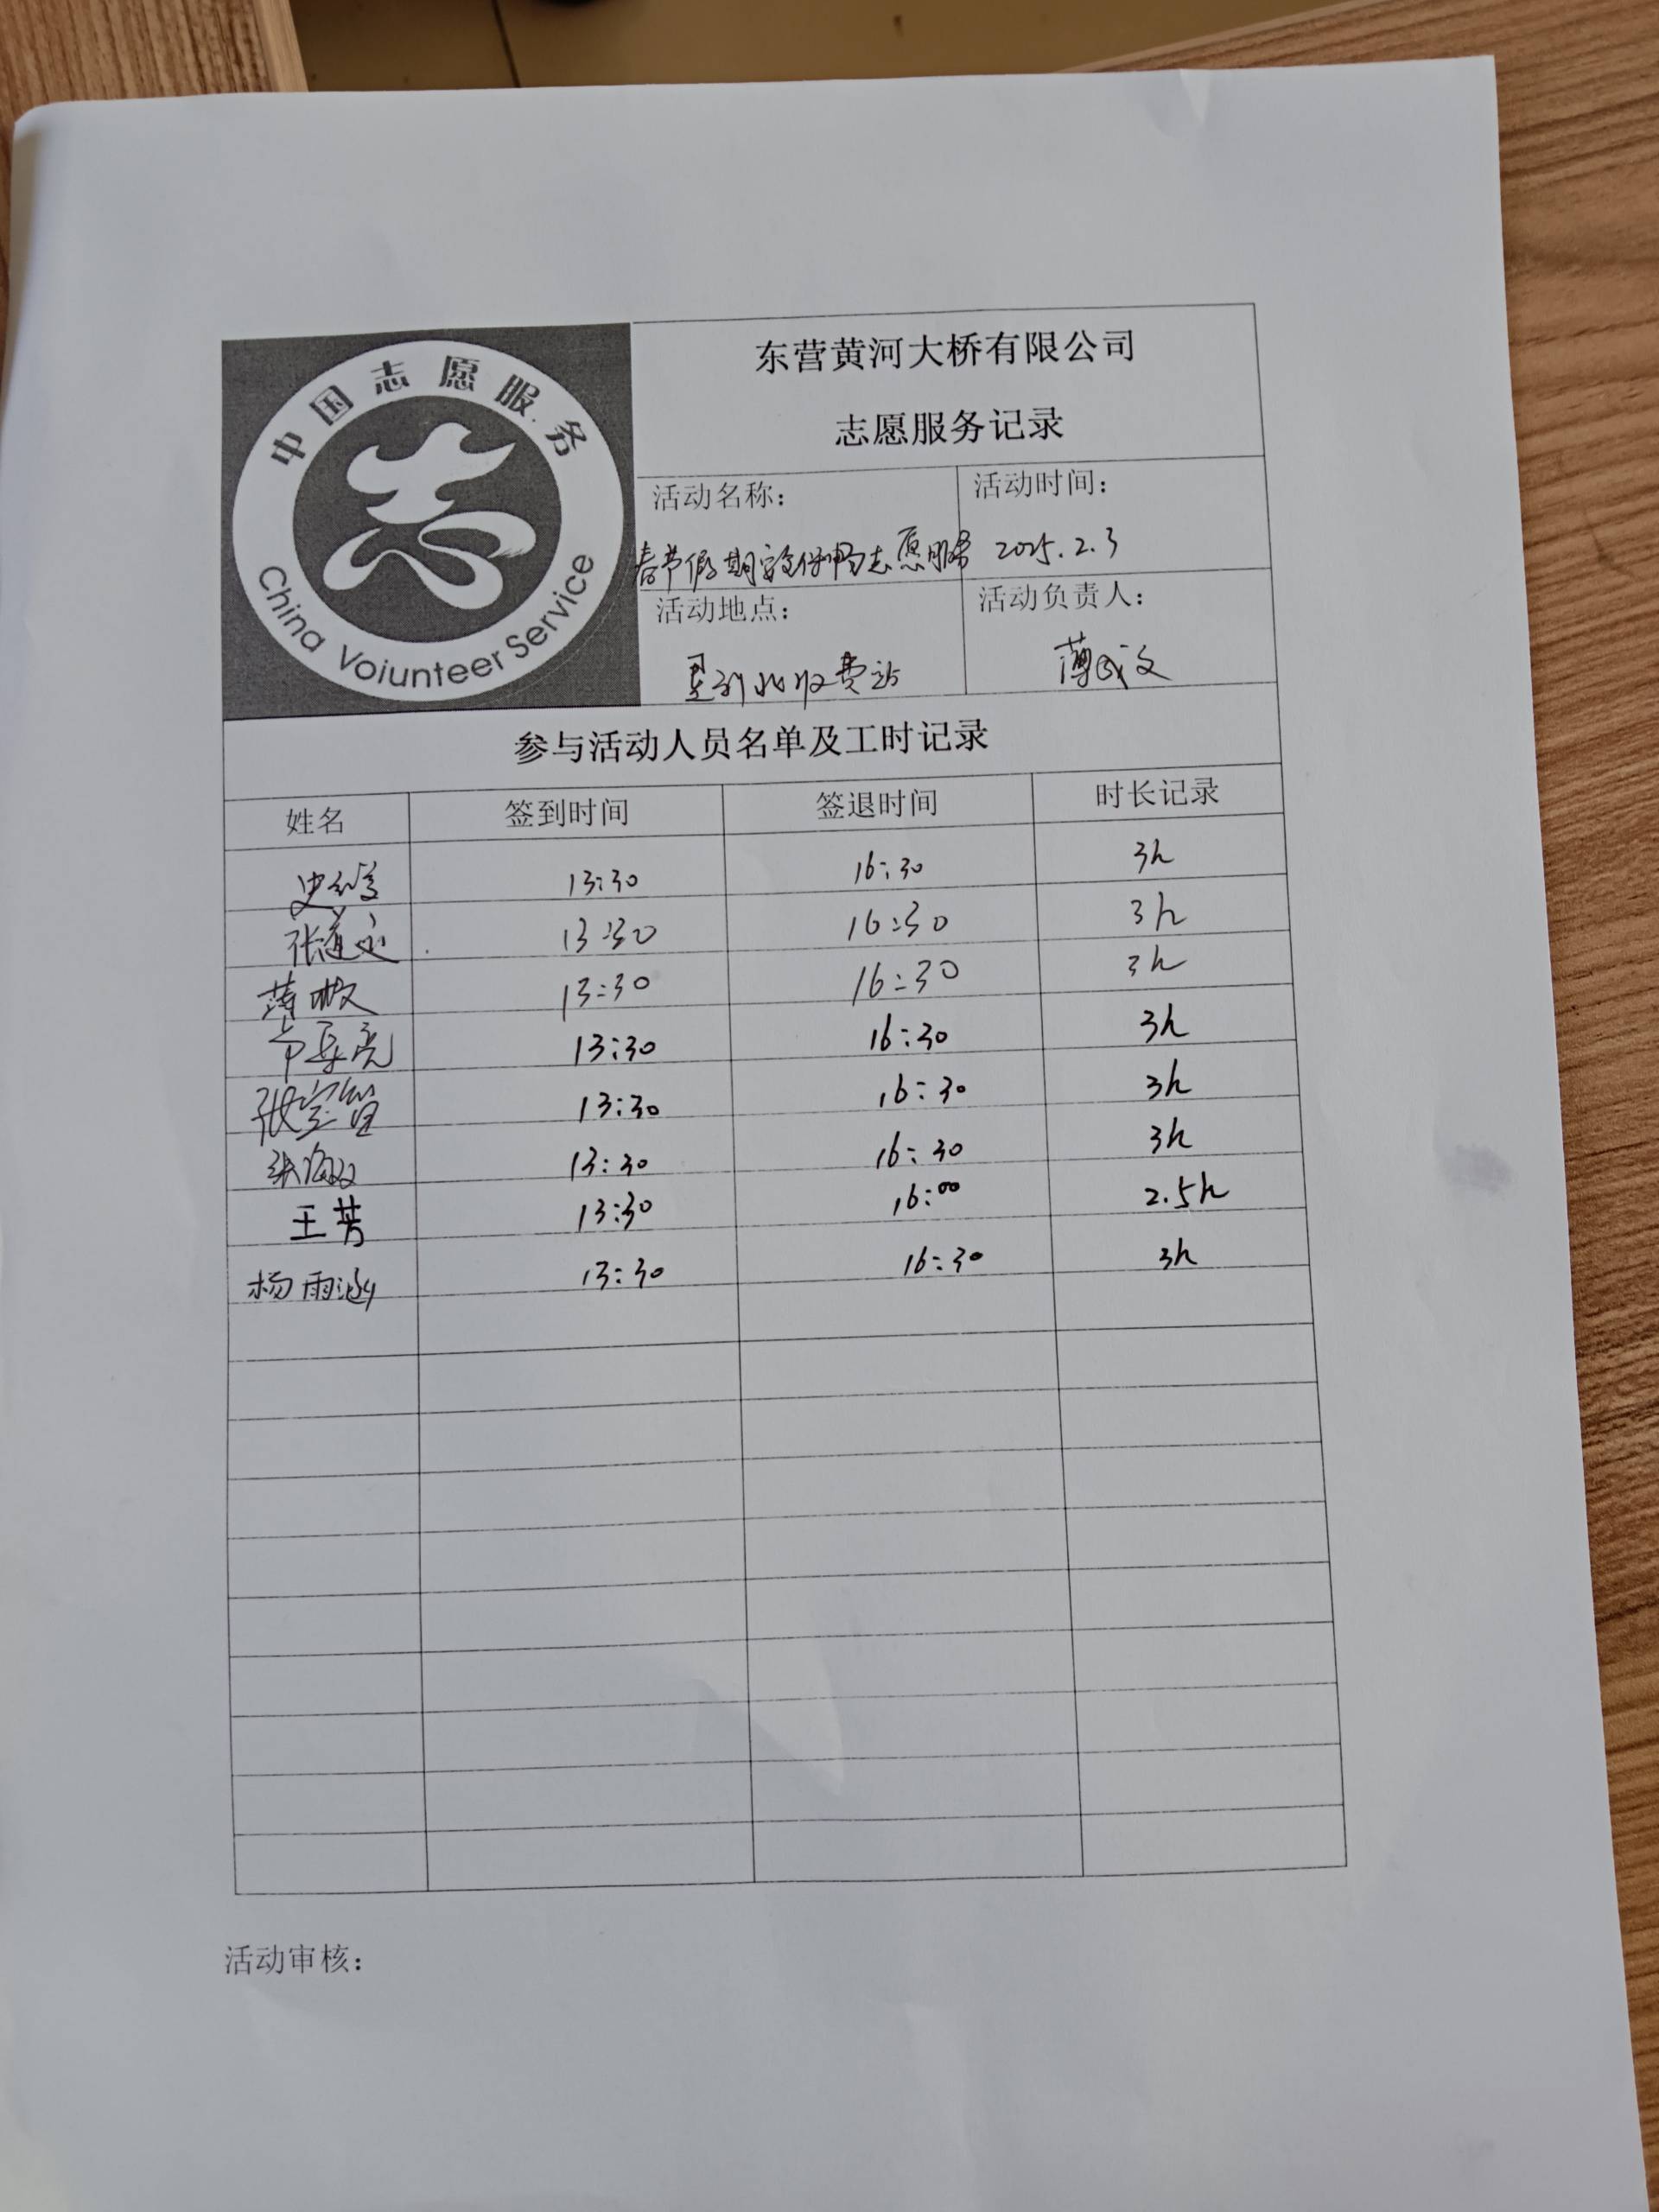 中国志愿服务
China Voiunteer Service
东营黄河大桥有限公司
志愿服务记录
活动名称：
春节假期安全保畅志愿服务
活动时间：
2025.2.3
活动地点：
垦利北收费站
活动负责人：
薄成文
参与活动人员名单及工时记录
姓名 签到时间 签退时间 时长记录
史 13:30 16:30 3h
张 13:30 16:30 3h
薄 13:30 16:30 3h
亮 13:30 16:30 3h
张宝 13:30 16:30 3h
张海 13:30 16:30 3h
王芳 13:30 16:00 2.5h
杨雨涵 13:30 16:30 3h
活动审核：